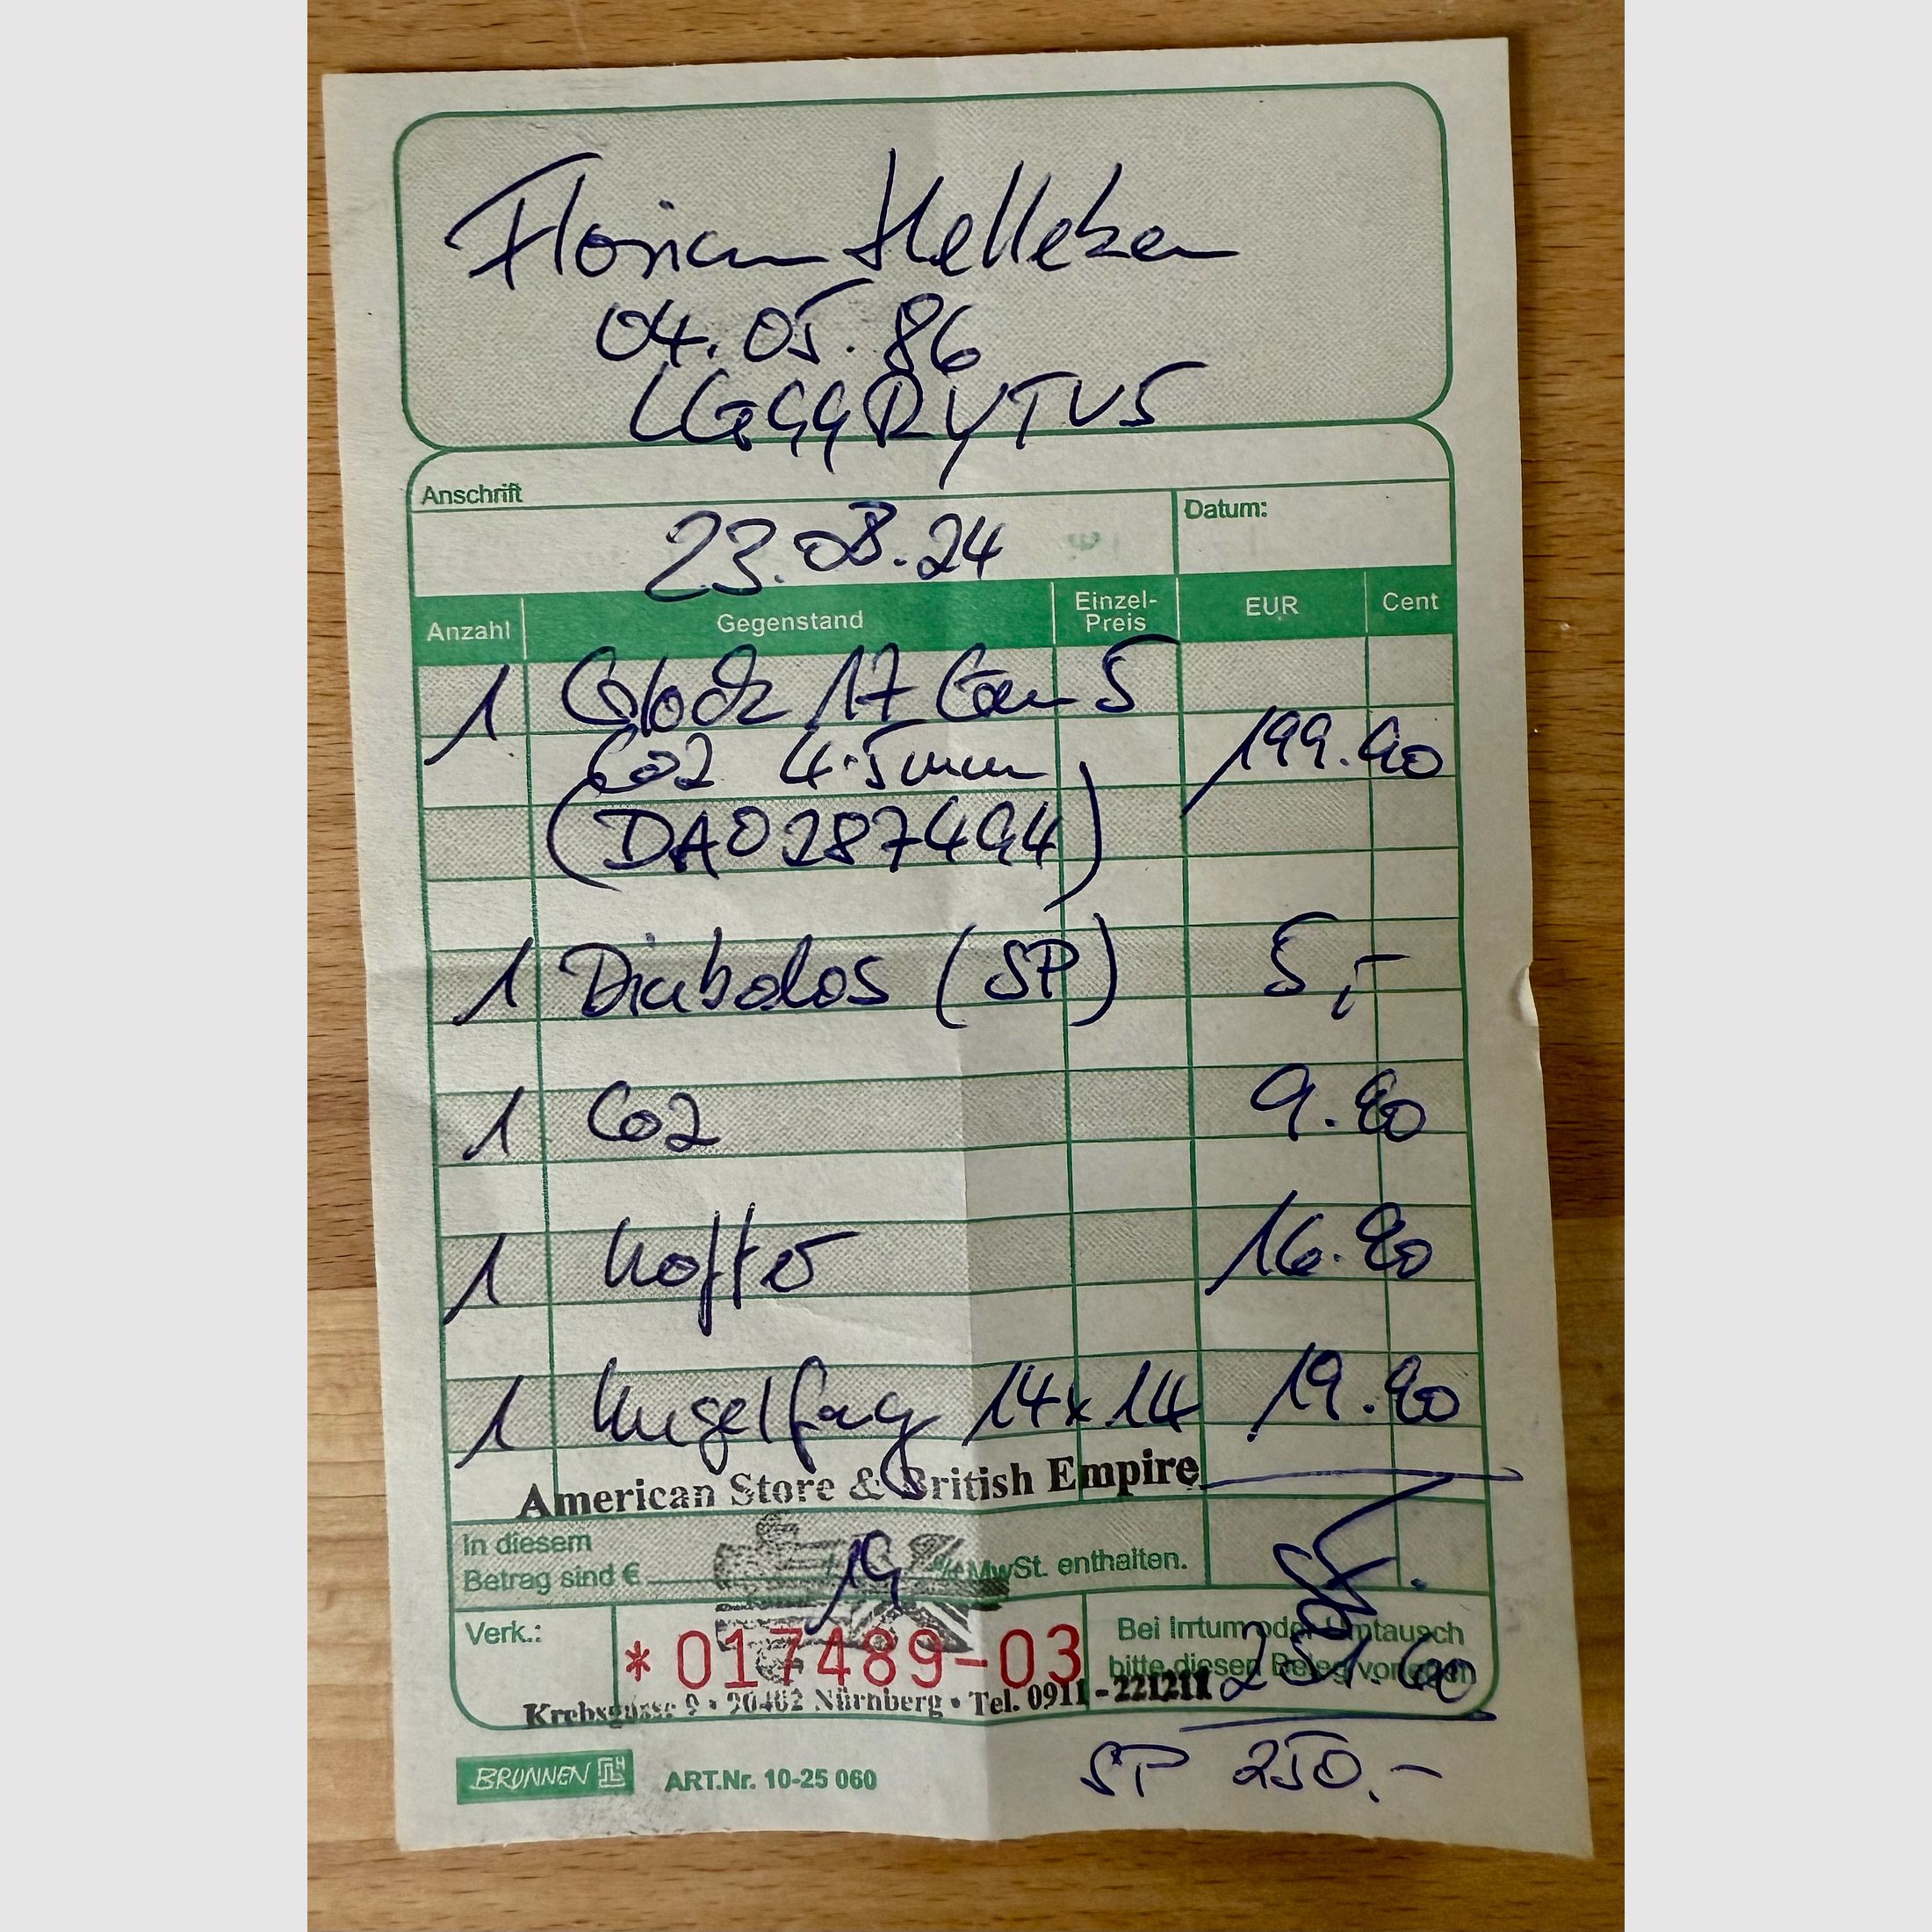 Florian Helleken
04.05.86
LG99RYTV5
Anschrift
Datum:
23.08.24
Anzahl Gegenstand Einzel-Preis EUR Cent
1 Glock 17 Gen 5
Co2 4.5mm 199.90
(DA0287494)
1 Diabolos (SP) 5,-
1 Co2 9.90
1 Koffer 16.90
1 Kugelfang 14x14 19.90
American Store & British Empire
In diesem
Betrag sind € 19 % MwSt. enthalten.
Verk.:
*017489-03
Bei Irrtum oder Umtausch
bitte diesen Beleg vorlegen
251.60
Krebsgasse 9 • 90402 Nürnberg • Tel. 0911 - 221211
BRUNNEN ART.Nr. 10-25 060
SP 250.-